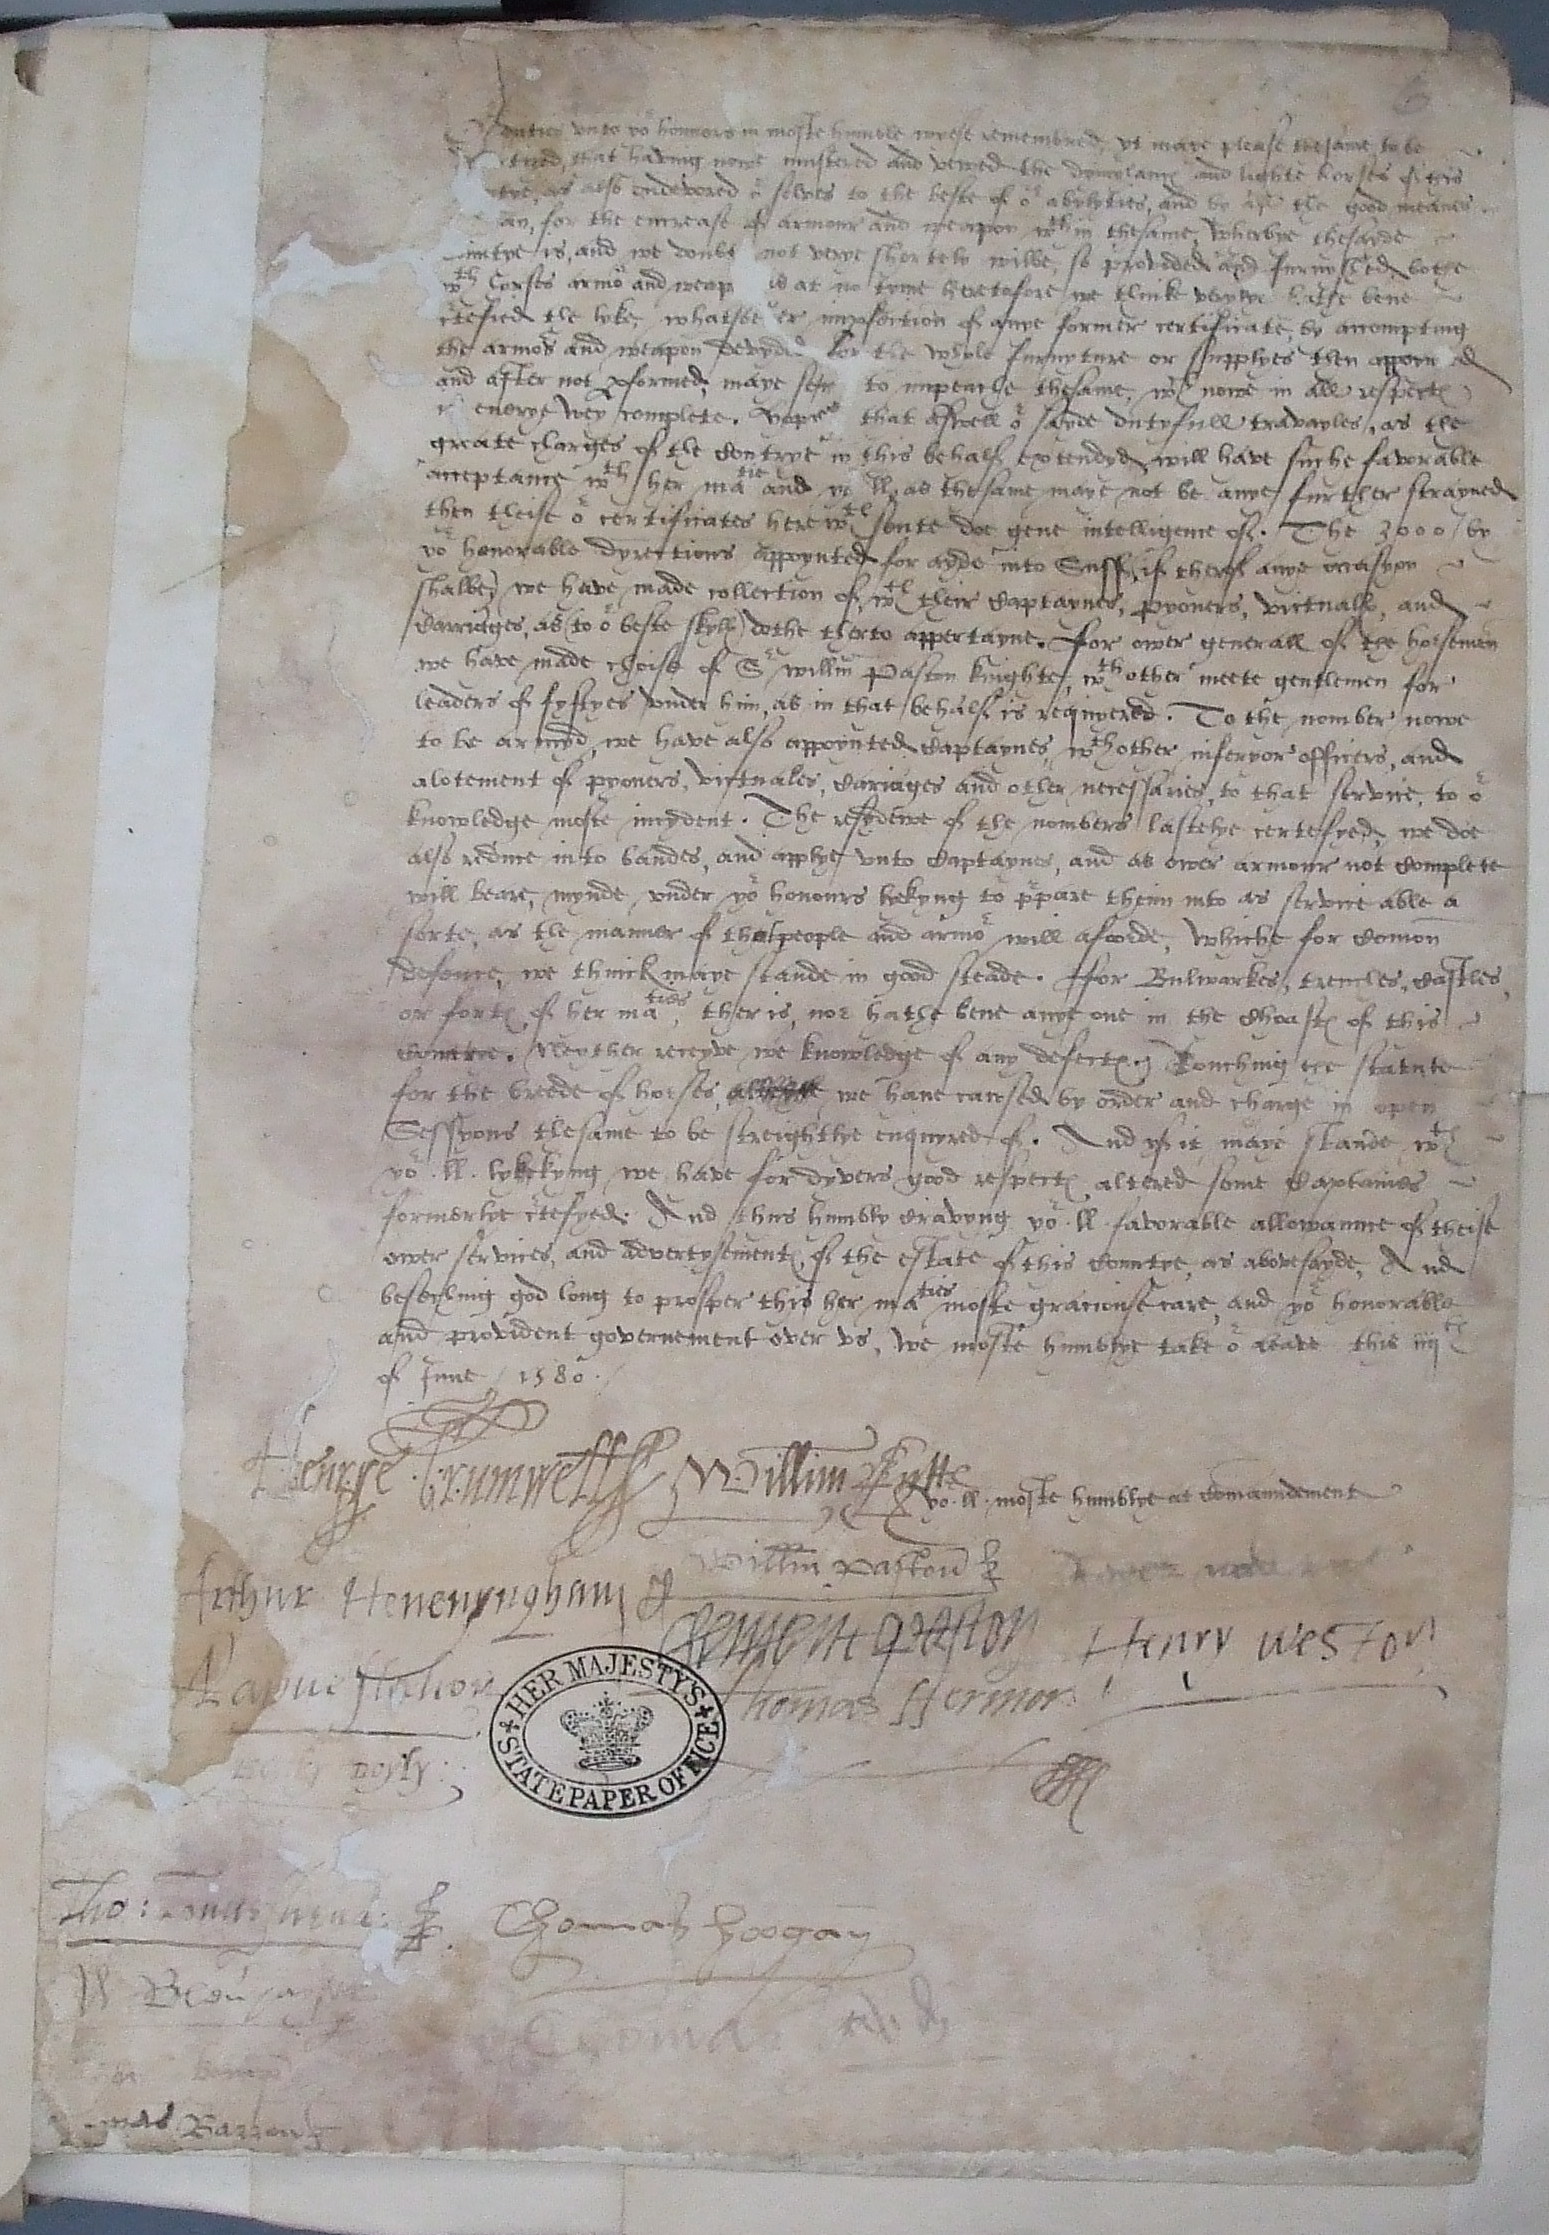 duties unto yor honnors in moste humble wyse remembred, yt maye please thesame to be
that having nowe mustered and vewed the dymylances and lighte horses of this
as also endevored or selves to the beste of or abylyties, and by all the good meanes
for the encrease of armour and weapon wthin thesame, wherbye thesayde
is, and we doubt not verye shortely wilbe, so provided and furnyshed, bothe
wth horses armor and weap at no tyme heretofore we think verylye hathe bene
certefied the lyke, whatsoever imperfection of anye former certificate, by accompting
the armor and weapon devyded for the whole furnyture or supplyes then appoynted
and after not performed, maye seme to impeache thesame, wch nowe in all respectes
is everye wey complete. that aswell or sayde dutyfull travayles, as the
greate charges of the Contrye in this behalf extendyd, will have suche favorable
acceptance wth her matie and yor ll. as thesame maye not be anye further strayned
then theise or certificates herewth sente doe geve intelligence of. The 3000 by
yor honorable dyrections appoynted for ayde into Suff. if therof anye occasyon
shalbe, we have made collection of, wth their Captaynes, Pyoners, victualls, and
Carriages, as (to or beste skyll) dothe therto appertayne. For ower generall of the horsemen
we have made choise of Sr Willm Paston knighte, wth other meete gentlemen for
leaders of fyftyes under him, as in that behalf is requyered. To the nomber nowe
to be armyd, we have also appoynted Captaynes, wth other inferyor officers, and
alotement of pyoners, victuales, Cariages and other necessaries, to that service, to or
knowledge moste incydent. The resydewe of the nombers lastelye certefyed, we doe
also reduce into bandes, and applye unto Captaynes, and as ower armour not Complete
will beare, mynde under yor honours lykyng to prepare theim into as service able a
sorte, as the manner of the people and armor will afoorde, whiche for Comon
defence, we thinck maye stande in good steade. ffor Bulwarkes, trenches, Castles,
or fortes of her maties, ther is, nor hathe bene anye one in the Choastes of this
Countrie. Neyther receyve we knowledge of any defectes. Touching the statute
for the breede of horses, we have caused by order and charge in open
Sessyons thesame to be streightlye enquyred of. And yf it maye stande wth
yor ll. lykkyng we have for dyvers good respectes altered some Captaines
formerlye certefyed. And thus humbly Cravyng yor ll. favorable allowaunce of theise
ower services, and advertysementes of the estate of this Countye, as abovesayde, And
beseching god long to prosper this her maties moste graciouse care, and yor honorable
and provident governement over us, we moste humblye take or leave this iiijth
of June / 1580 /
Henrye Crumwell Willim Butte
yor ll. moste humblye at Comaundement
Willm Paston
Arthur Hevenyngham
Clement Paston Henry Weston
Thomas
HER MAJESTY'S STATE PAPER OFFICE
Doyly
Tho: Townshend Thomas Hoogan
Thomas
Barrow